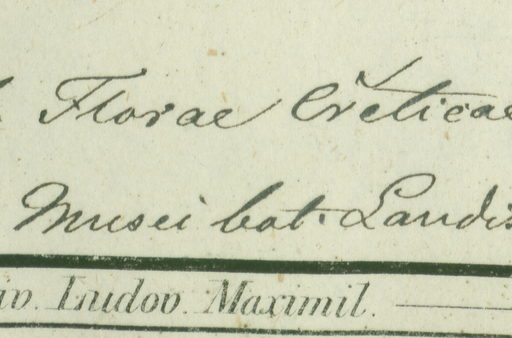 Florae Creticae
Musei bot. Landis
iv. Ludov. Maximil.